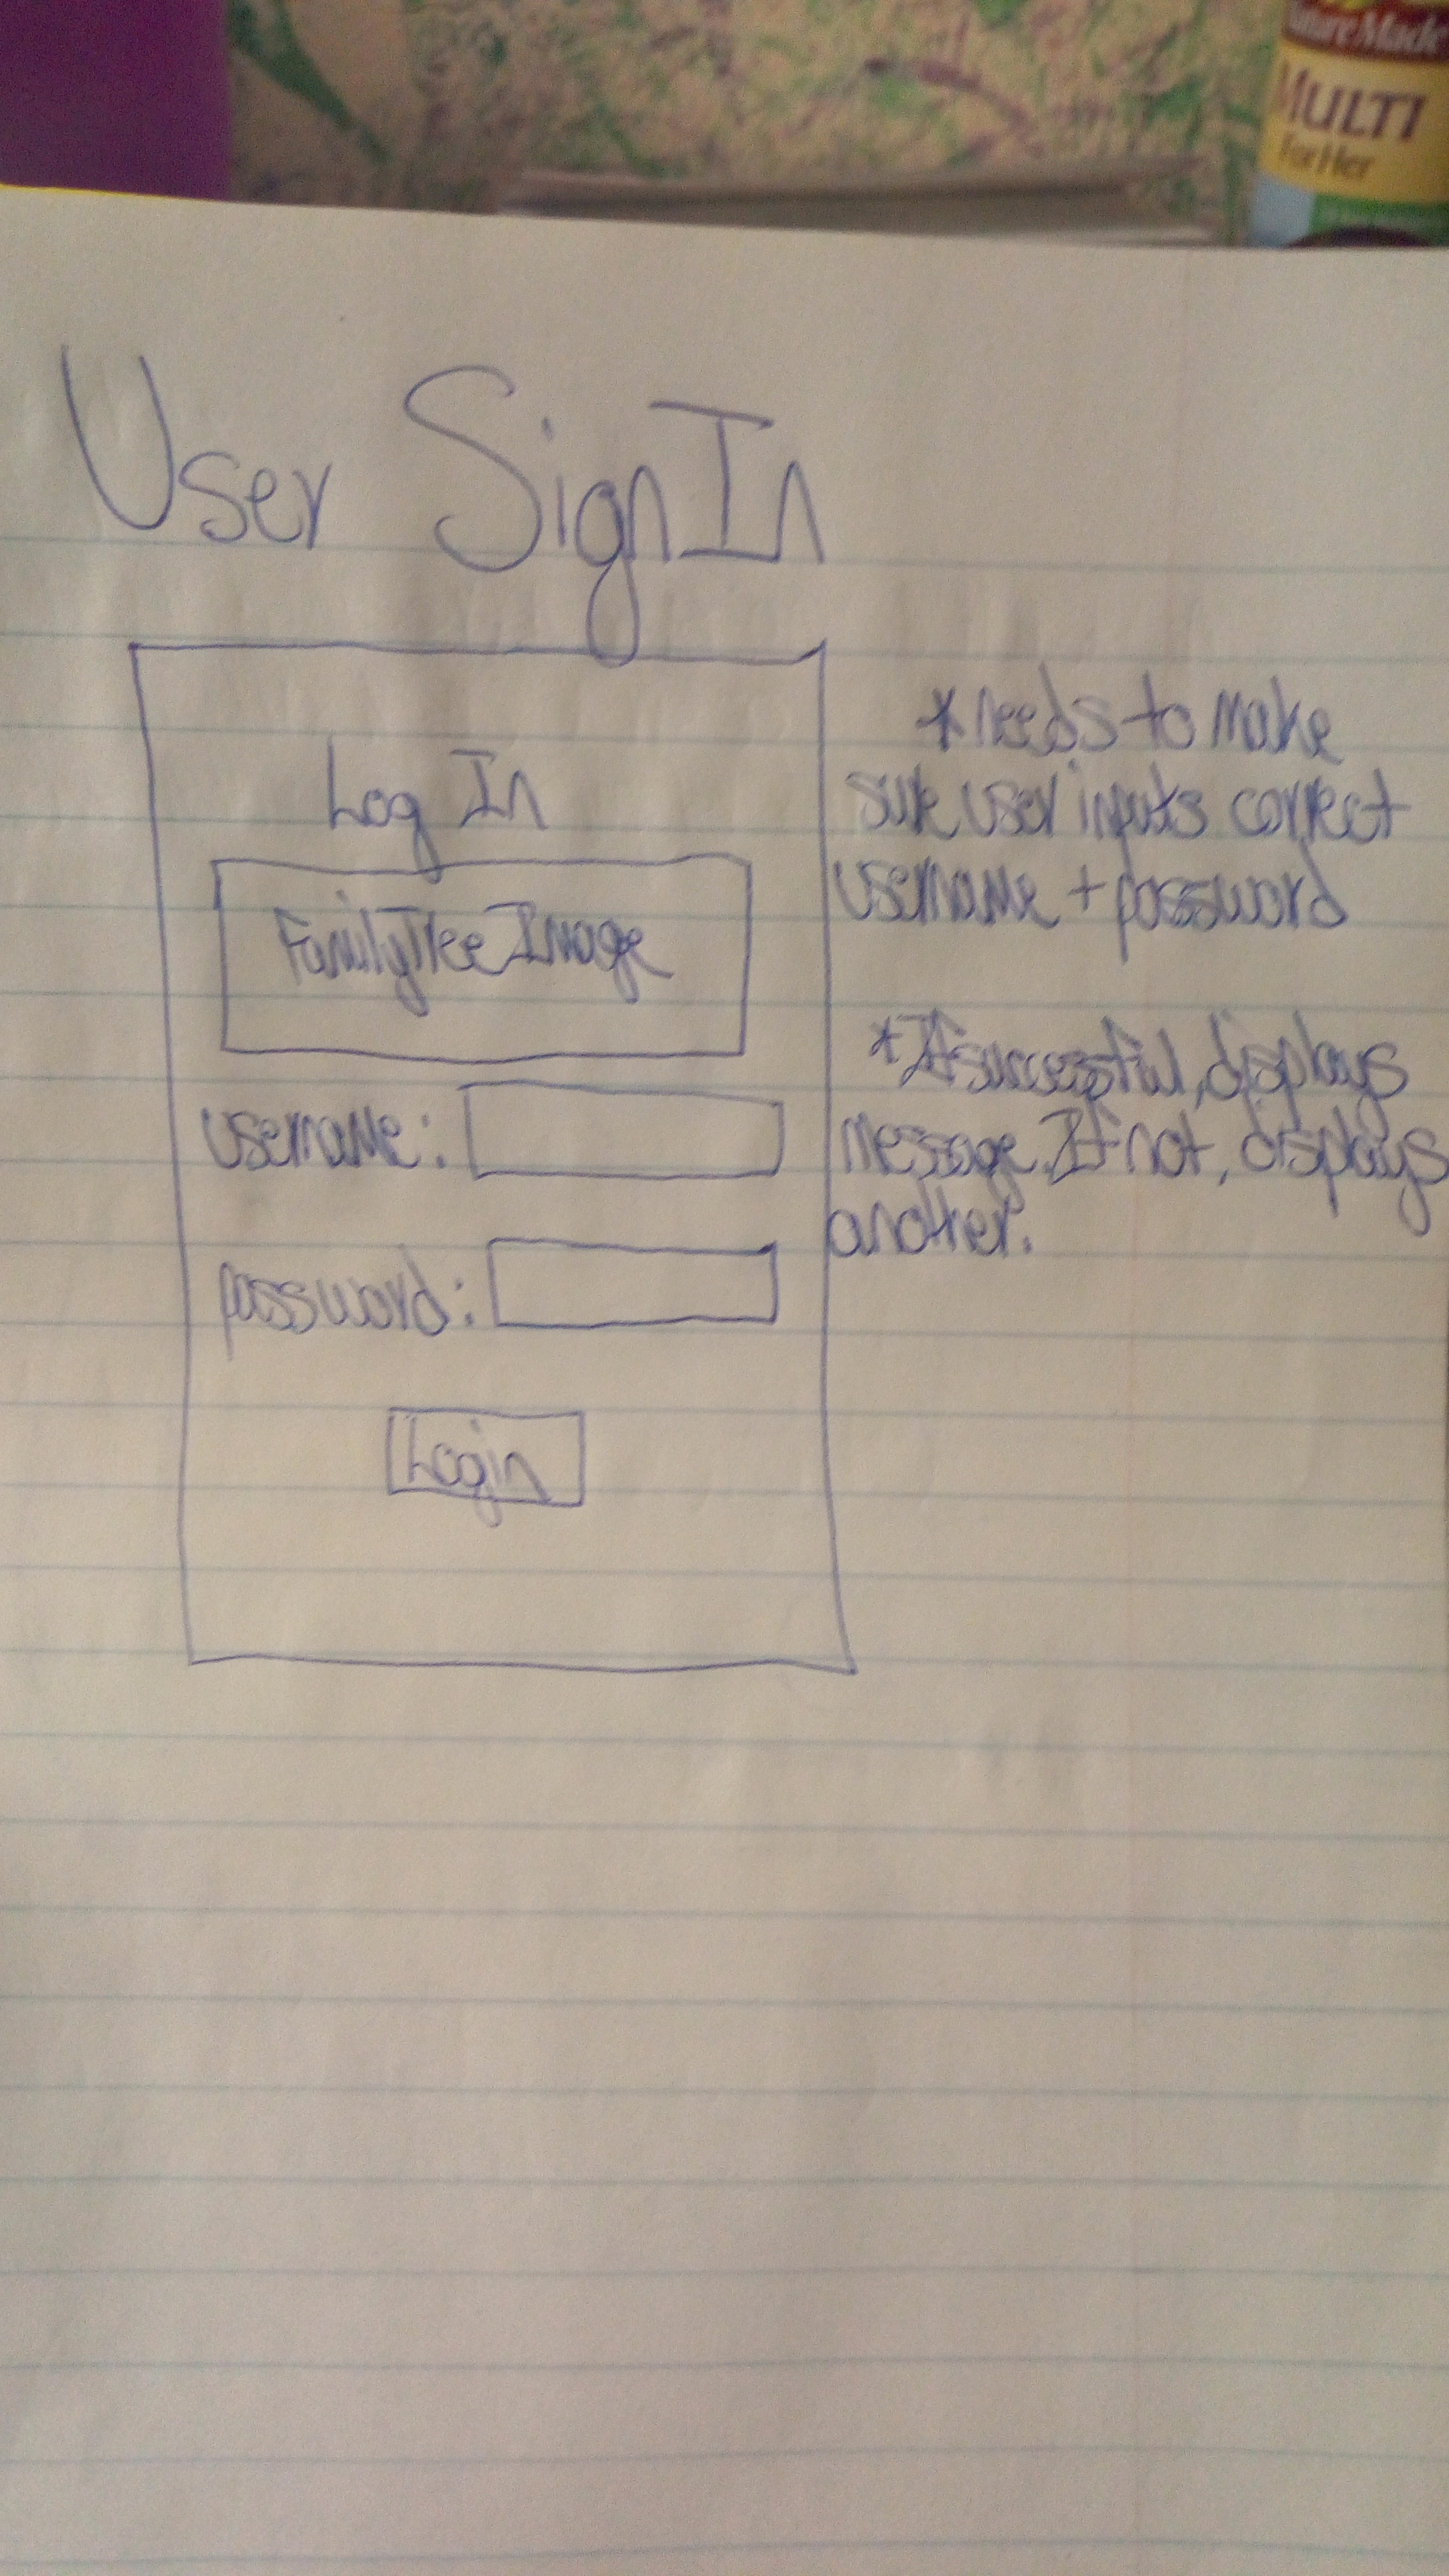 Nature Made
MULTI
For Her
User Sign In
Log In
Family Tree Image
username:
password:
Login
*needs to make
sure user inputs correct
username + password
*If successful, displays
message. If not, displays
another.